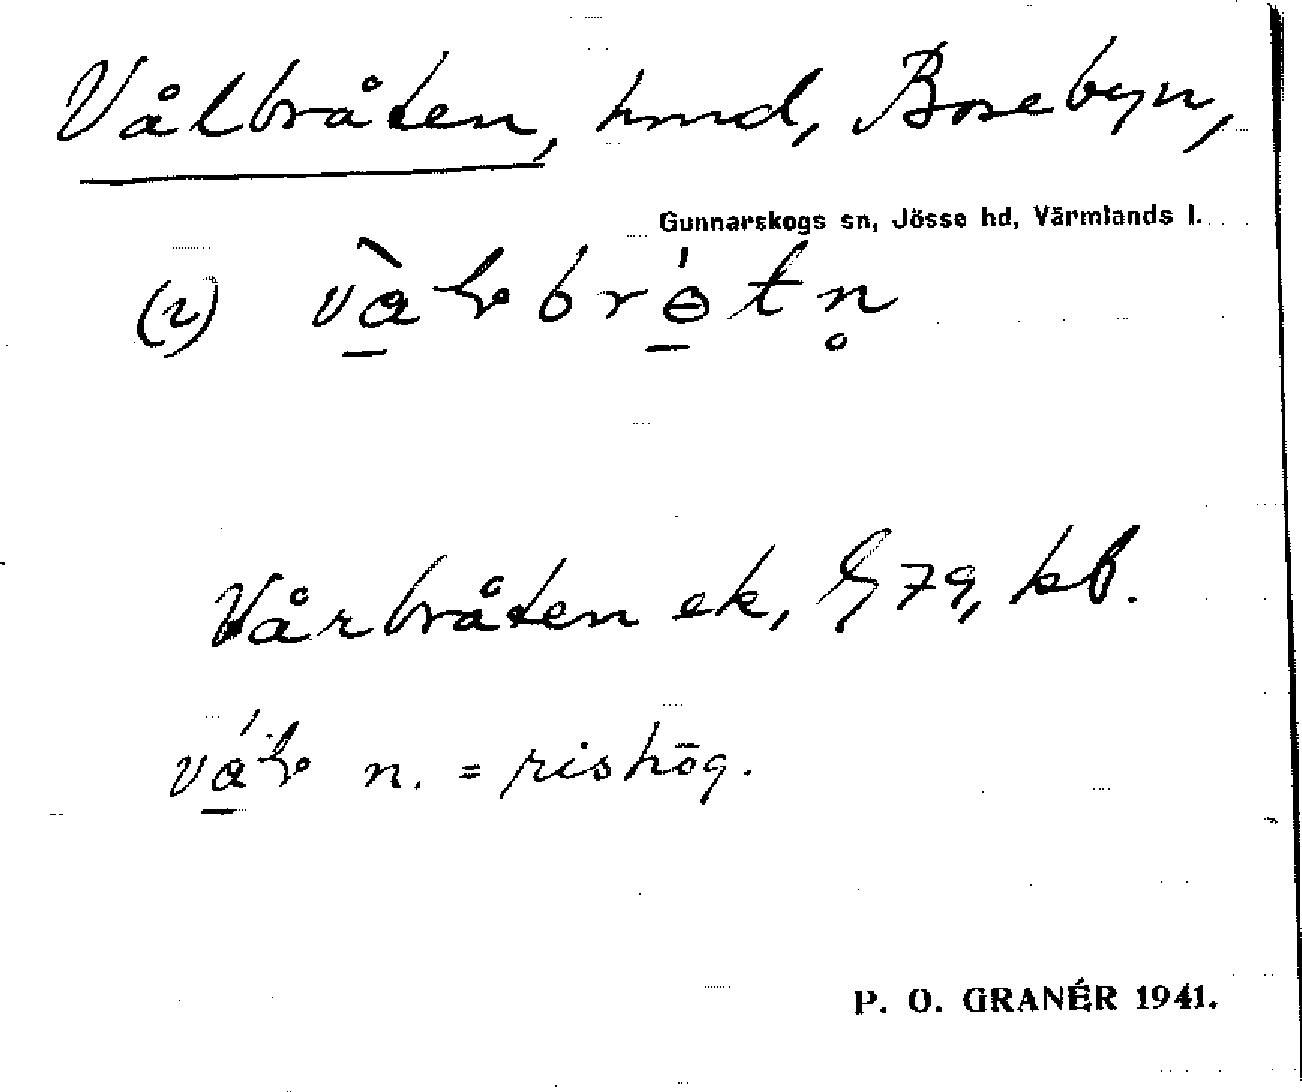 Vålbråten, hmd, Bosebyn,
Gunnarskogs sn, Jösse hd, Värmlands l.
(2)
Vårbråten ek, G 79, kb.
n. = rishög.
P. O. GRANÉR 1941.